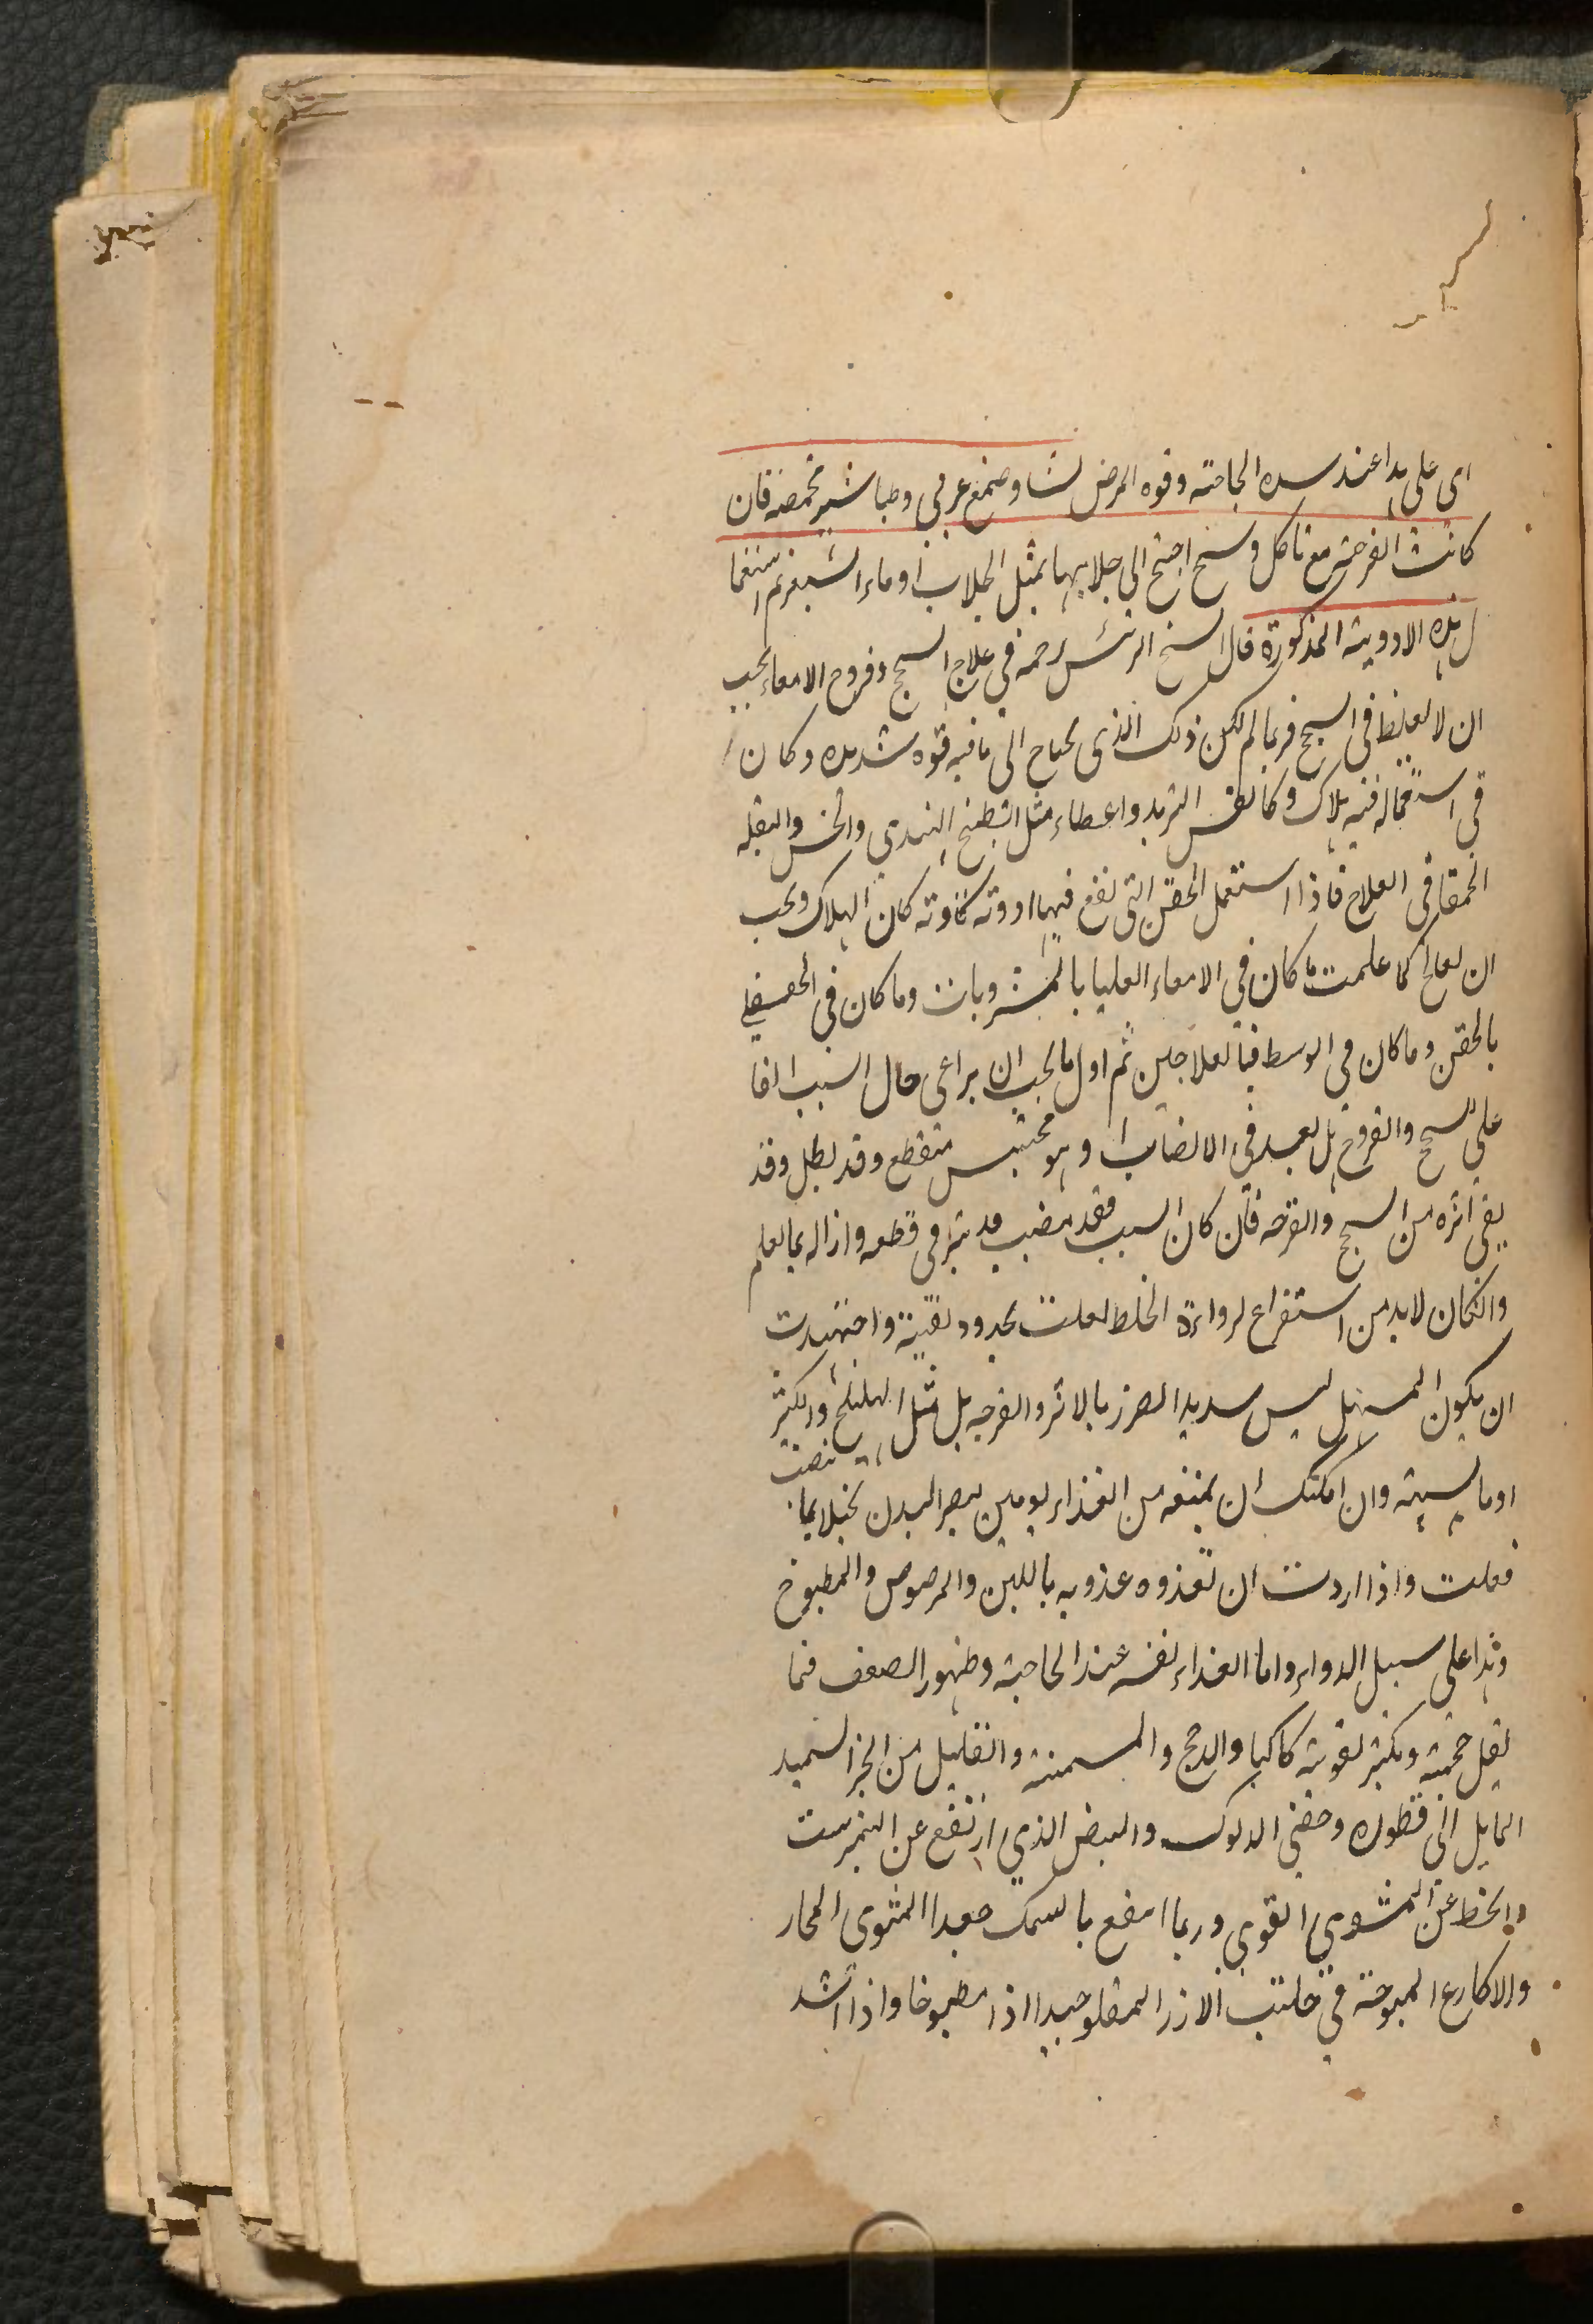 اى على هذا عند شده الحاجته وقوه المرض نشا وصمغ عربى وطباشير محمصه فان
كانت القرحة مع تاكل وسخ احتيج الى جلايها بمثل الجلاب او ماء الشعير ثم استعما
ل هذه الادوية المذكورة قال الشيخ الرئيس رحمه فى علاج السحج وقروح الامعاء يجب
ان لا يغلظ فى السحج فربما لم يكن ذلك الذى يحتاج الى ما فيه قوه شديده وكان
فى استعماله فيه هلاك وكما يقتصر التبريد واعطاء مثل البطيخ الهندي والخس والبقله
الحمقا فى العلاج فاذا استعمل الحقن التى تقع فيها ادوته كاوته كان الهلاك ويجب
ان يعالج كما علمت ما كان فى الامعاء العليا بالمشروبات وما كان فى السفلى
بالحقن وما كان فى الوسط فبالعلاجين ثم اول ما يجب ان يراعى حال السبب الفا
على للسحج والقروح هل بعد فى الانصاب او هو محتبس منقطع وقد بطل وقد
بقى اثره من السحج والقرحه فان كان السبب فقد ينصب دبر فى قطعه وازاله بما يعلم
وان كان لا بد من استفراغ لرداءة الخلط فعلت بحدود تقيته واجتهدت
ان يكون المسهل ليس شديد الضرر بالاثر والقرحه بل مثل الهليلج والكثيرا
او ما يشبهه وان امكنك ان يمنعه من الغذاء يومين ليصير البدن بخيلا بما ينصب
فعلت واذا اردت ان تغذوه غذوته باللبن والمرصوص والمطبوخ
وهذا على سبيل الدواء واما الغذاء نفسه عند الحاجته وظهور الضعف فما
يقل حجمه ويكثر تقويته كاكباد الدجج والمسمنه والقليل من الخبز السميد
المايل الى قطوره وخصى الديوك والبيض الذي ارتفع عن النمبرشت
وانحط عن المشوي القوي وربما انتفع بالسمك جيدا المشوى الحار
والاكارع المطبوخة فى حليب الارز المقلو جيدا اذا مطبوخا واذا اشد